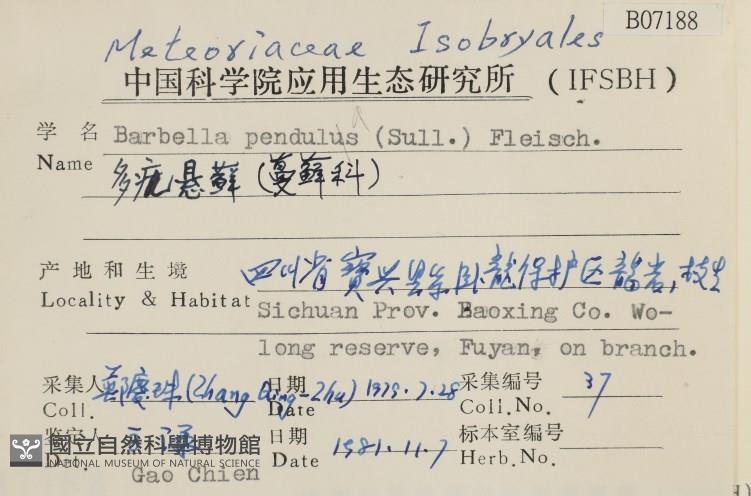 B07188
Meteoriaceae Isobryales
中国科学院应用生态研究所 (IFSBH)
学 名 Barbella pendulus a (Sull.) Fleisch.
Name 多疣悬藓 (蔓藓科)
产地和生境 四川省寶兴县 卧龍保护区 岩, 枝生
Locality & Habitat Sichuan Prov. Baoxing Co. Wo-
long reserve, Fuyan, on branch.
采集人 (Zhang Qing-Zhu) 日期 1979.7.28 采集编号 37
Coll. Date Coll.No.
鉴定人 日期 1981.11.7 标本室编号
Det. Gao Chien Date Herb.No.
國立自然科學博物館
NATIONAL MUSEUM OF NATURAL SCIENCE